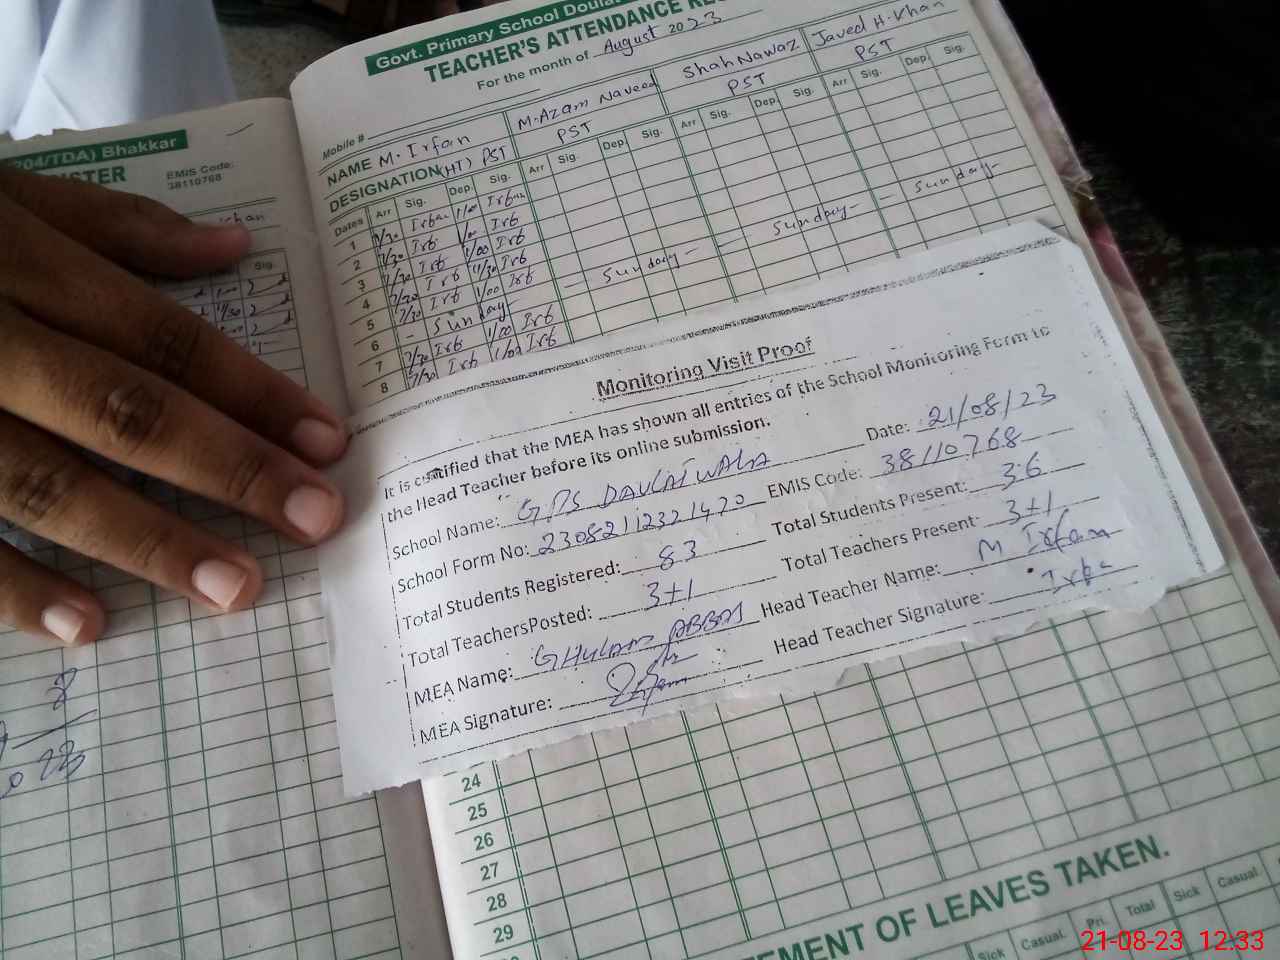 204/TDA) Bhakkar
EMIS Code:
38110768
Sig.
Govt. Primary School
TEACHER'S ATTENDANCE
For the month of August 2023
Mobile #
NAME M. Irfan M. Azam Naveed Shah Nawaz Javed H. Khan
DESIGNATION (HT) PST PST PST PST
Dates Arr Sig. Dep. Sig. Arr Sig. Dep Sig. Arr Sig. Dep. Sig. Arr Sig. Dep Sig.
1 7/30 1/00
2 7/30 Irf 1/00 Irf
3 7/30 Irf 1/00 Irf
4 7/30 Irf 11/30 Irf
5 7/30 Irf 1/00 Irf
6 - Sunday - - Sunday - - Sunday - - Sunday -
7 7/30 Irf 1/00 Irf
8 7/30 Irf 1/00 Irf
Monitoring Visit Proof
It is certified that the MEA has shown all entries of the School Monitoring Form to
the Head Teacher before its online submission.
School Name: GPS DAULATWALA Date: 21/08/23
School Form No: 23082112321470 EMIS Code: 38110768
Total Students Registered: 83 Total Students Present: 36
Total TeachersPosted: 3+1 Total Teachers Present: 3+1
MEA Name: GHULAM ABBAS Head Teacher Name: M Irfan
MEA Signature: Head Teacher Signature:
24
25
26
27
28
29
EMENT OF LEAVES TAKEN.
Sick Casual Pri. Total Sick Casual
21-08-23 12:33